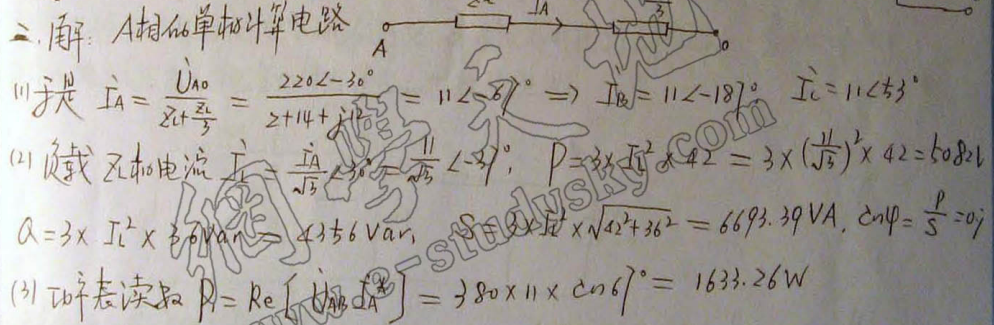 二.解: A相的单相计算电路 A İA o
(1)于是 İA = U̇AO / (Zl+ZL/3) = 220∠-30° / (2+14+j12) = 11∠-67° ⇒ İB = 11∠-187° İC = 11∠53°
(2) 负载ZL相电流 İL = İA/√3 ∠30° = 11/√3 ∠-37°, P = 3×IL²×42 = 3×(11/√3)²×42 = 5082W
Q = 3×IL²×36Var = 4356Var, S = 3×IL²×√42²+36² = 6693.39VA, cosφ = P/S =
(3) 功率表读数 P1 = Re[U̇AB İA*] = 380×11×cos67° = 1633.26W
www.e-studysky.com